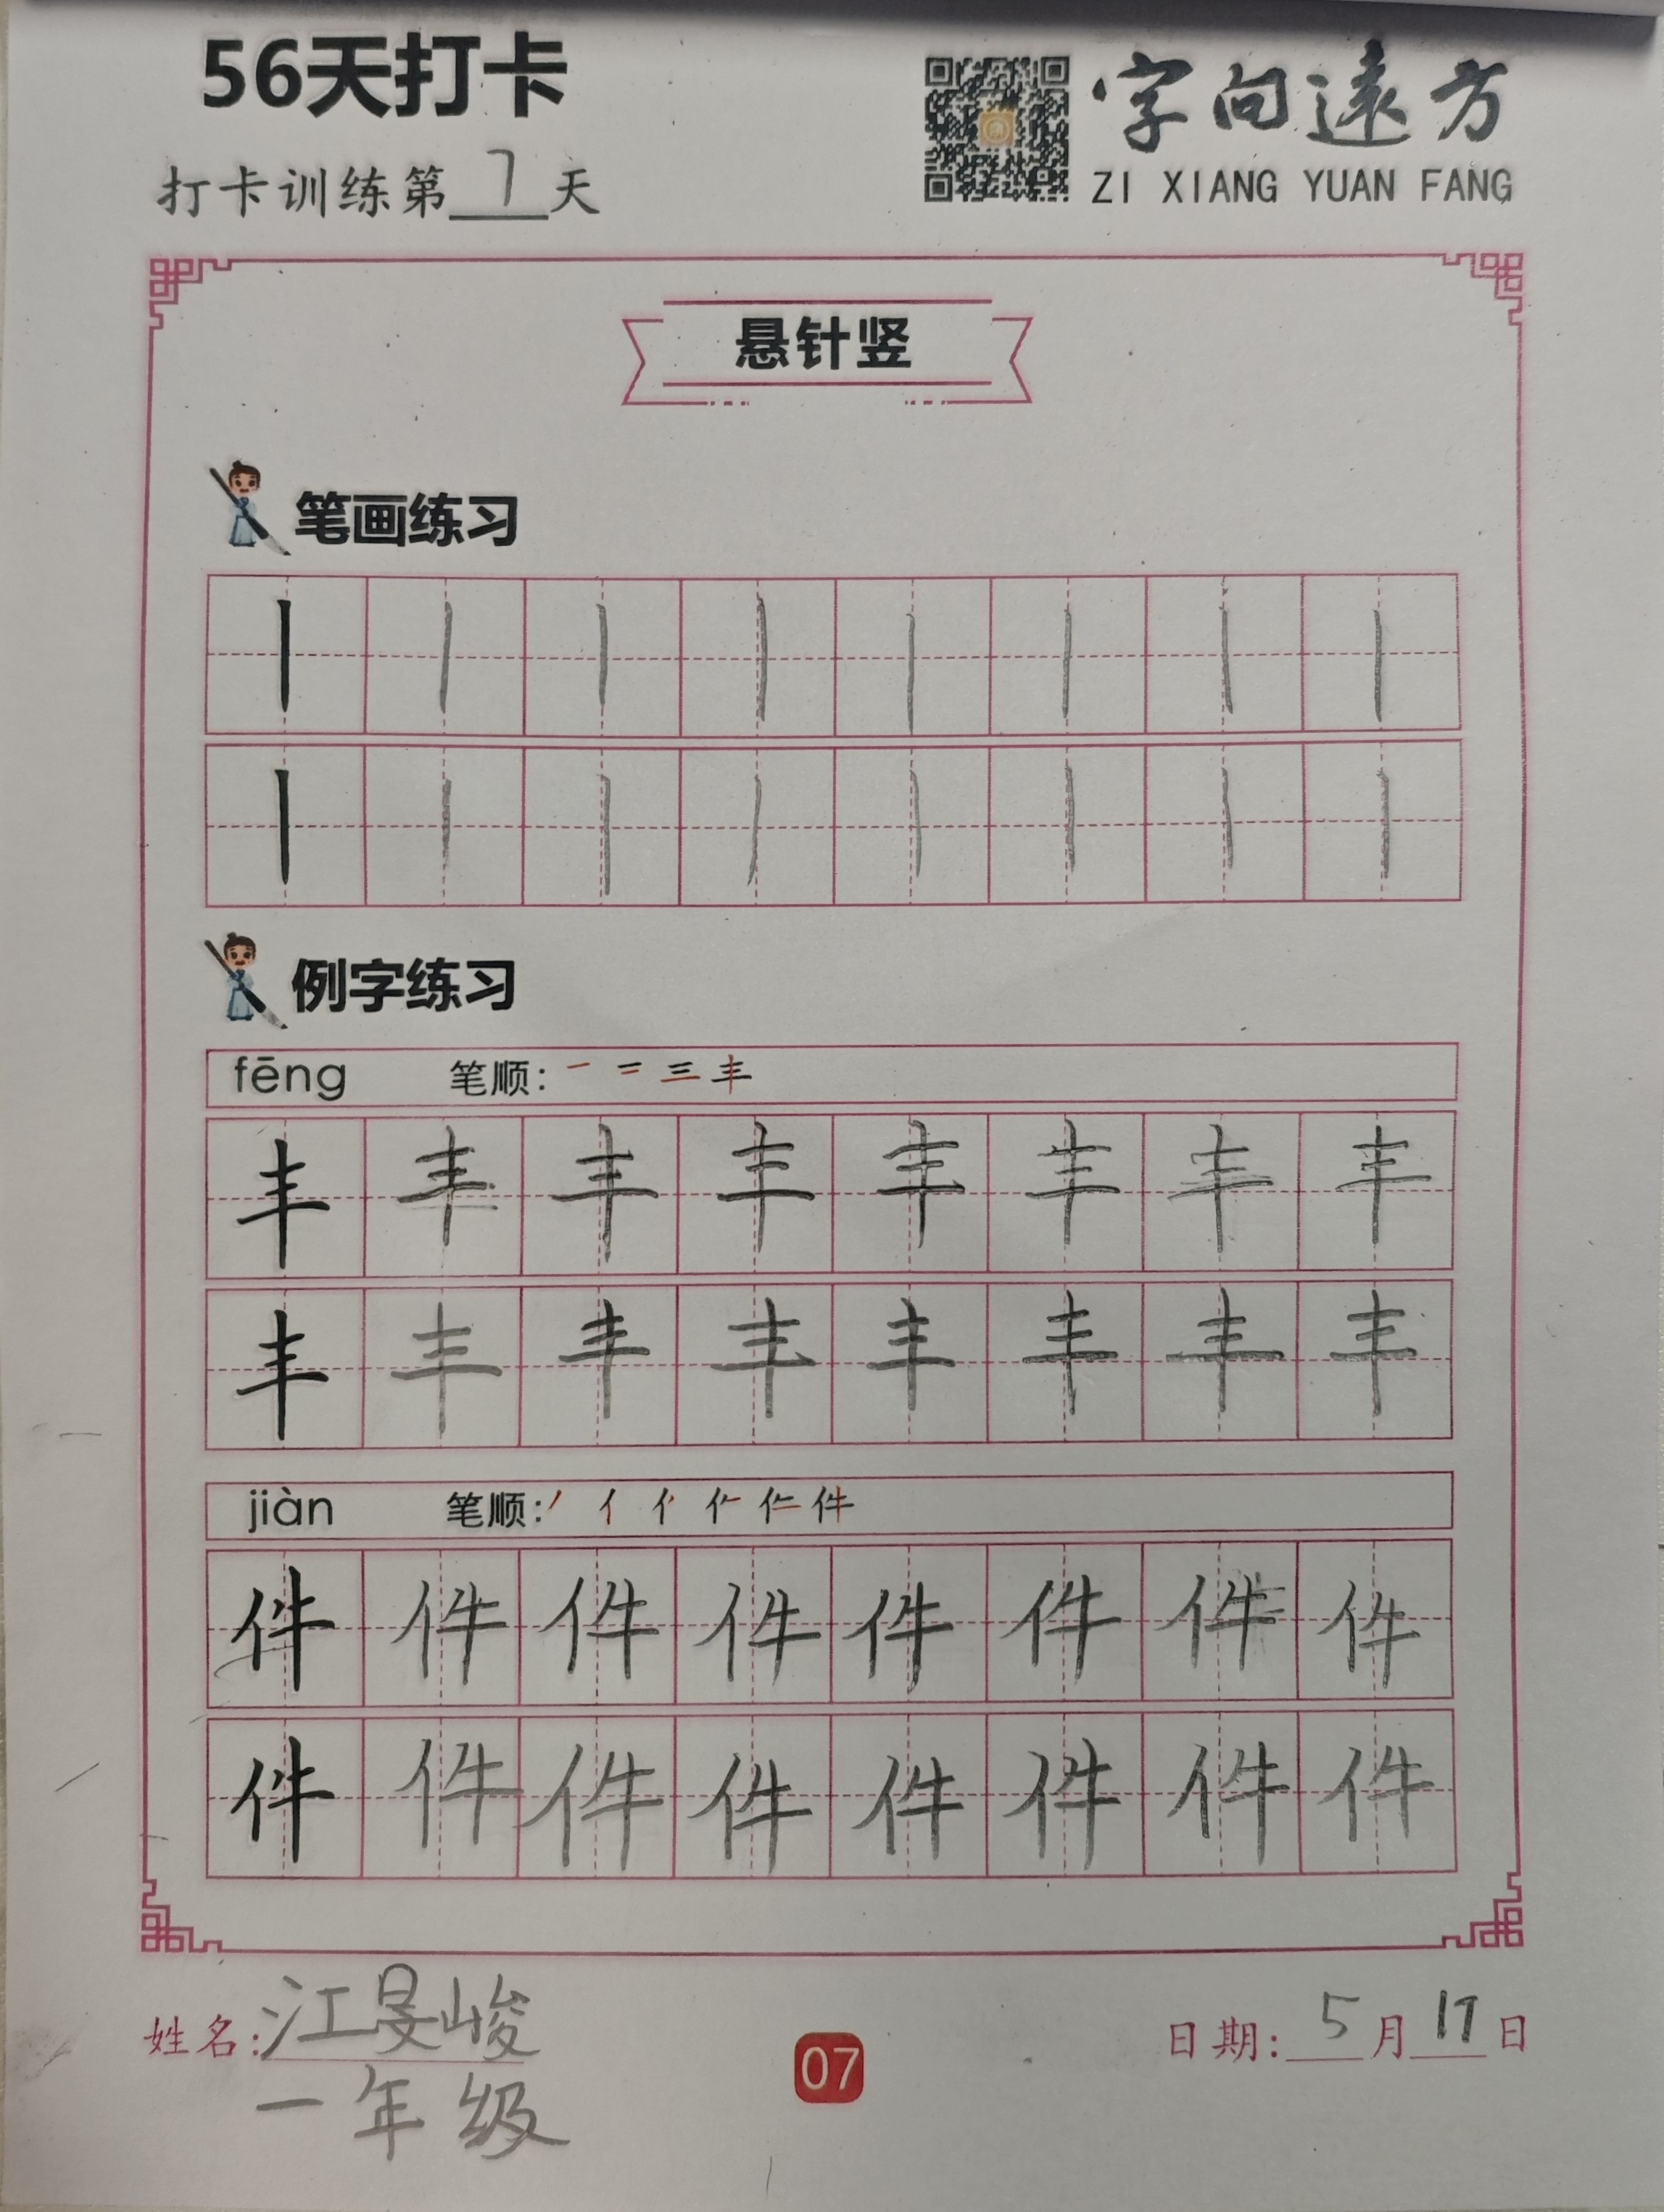 56天打卡
字向遠方
打卡训练第 7 天
ZI XIANG YUAN FANG
悬针竖
笔画练习
例字练习
fēng 笔顺: 一 二 三 丰
丰 丰 丰 丰 丰 丰 丰 丰
丰 丰 丰 丰 丰 丰 丰 丰
jiàn 笔顺: 件
件 件 件 件 件 件 件 件
件 件 件 件 件 件 件 件
姓名: 江旻峻
一年级
07
日期: 5 月 17 日